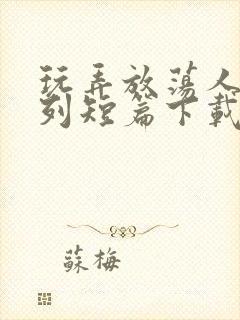 玩弄放荡人
列短篇下載
蘇梅